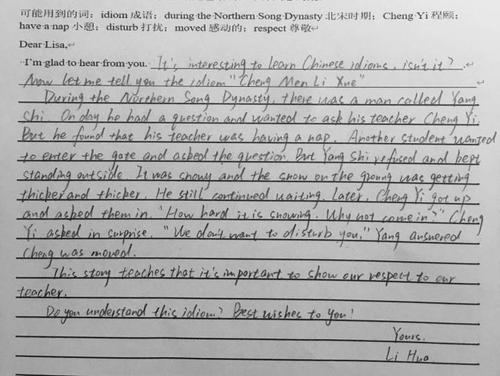 可能用到的词：idiom 成语；during the Northern Song Dynasty 北宋时期；Cheng Yi 程颐；
have a nap 小憩；disturb 打扰；moved 感动的；respect 尊敬
Dear Lisa,
I'm glad to hear from you. It's interesting to learn Chinese idioms, isn't it?
Now let me tell you the idiom "Cheng Men Li Xue"
During the Northern Song Dynasty, there was a man called Yang
Shi. On day he had a question and wanted to ask his teacher Cheng Yi.
But he found that his teacher was having a nap. Another student wanted
to enter the gate and asked the question. But Yang Shi refused and kept
standing outside. It was snowy and the snow on the groung was getting
thicker and thicker. He still continued waiting. Later, Cheng Yi got up
and asked them in. "How hard it is snowing. Why not come in?" Cheng
Yi asked in surprise. "We don't want to disturb you." Yang answered
Cheng was moved.
This story teaches that it's important to show our respect to our
teacher.
Do you understand this idiom? Best wishes to you!
Yours,
Li Hua